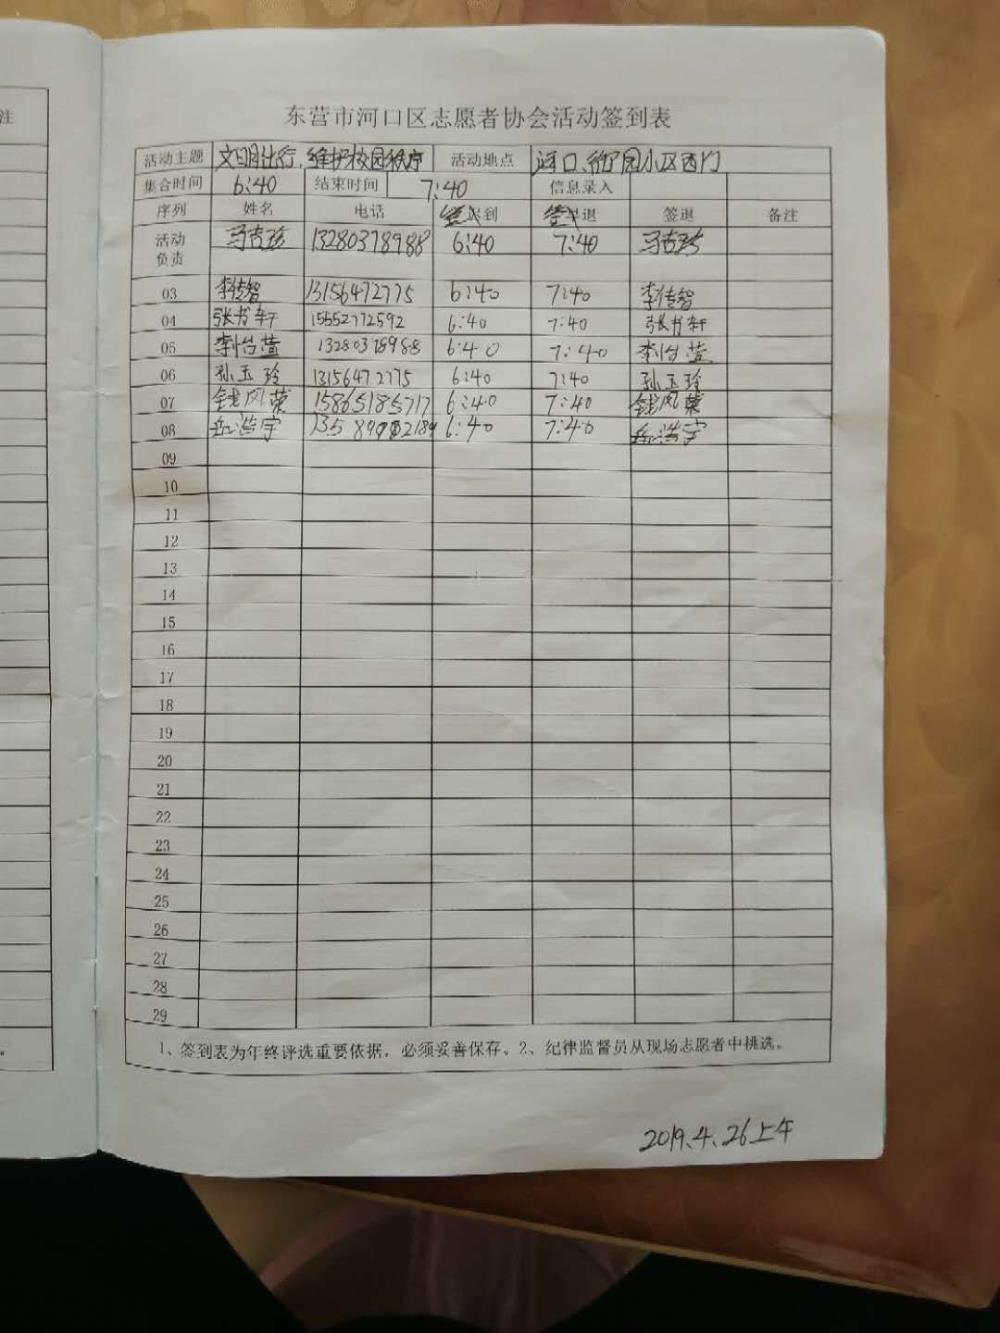 注
东营市河口区志愿者协会活动签到表
活动主题 文明出行、维护校园秩序 活动地点 河口、御园小区西门
集合时间 6:40 结束时间 7:40 信息录入
序列 姓名 电话 签到 签退 签退 备注
活动负责 马吉珍 13280378988 6:40 7:40 马吉珍
03 李传智 13156472775 6:40 7:40 李传智
04 张书轩 15552772592 6:40 7:40 张书轩
05 李怡萱 13280378988 6:40 7:40 李怡萱
06 孙玉玲 13156472775 6:40 7:40 孙玉玲
07 钱风荣 15865185717 6:40 7:40 钱风荣
08 岳浩宇 6:40 7:40 岳浩宇
09
10
11
12
13
14
15
16
17
18
19
20
21
22
23
24
25
26
27
28
29
1、签到表为年终评选重要依据，必须妥善保存。2、纪律监督员从现场志愿者中挑选。
2019.4.26上午